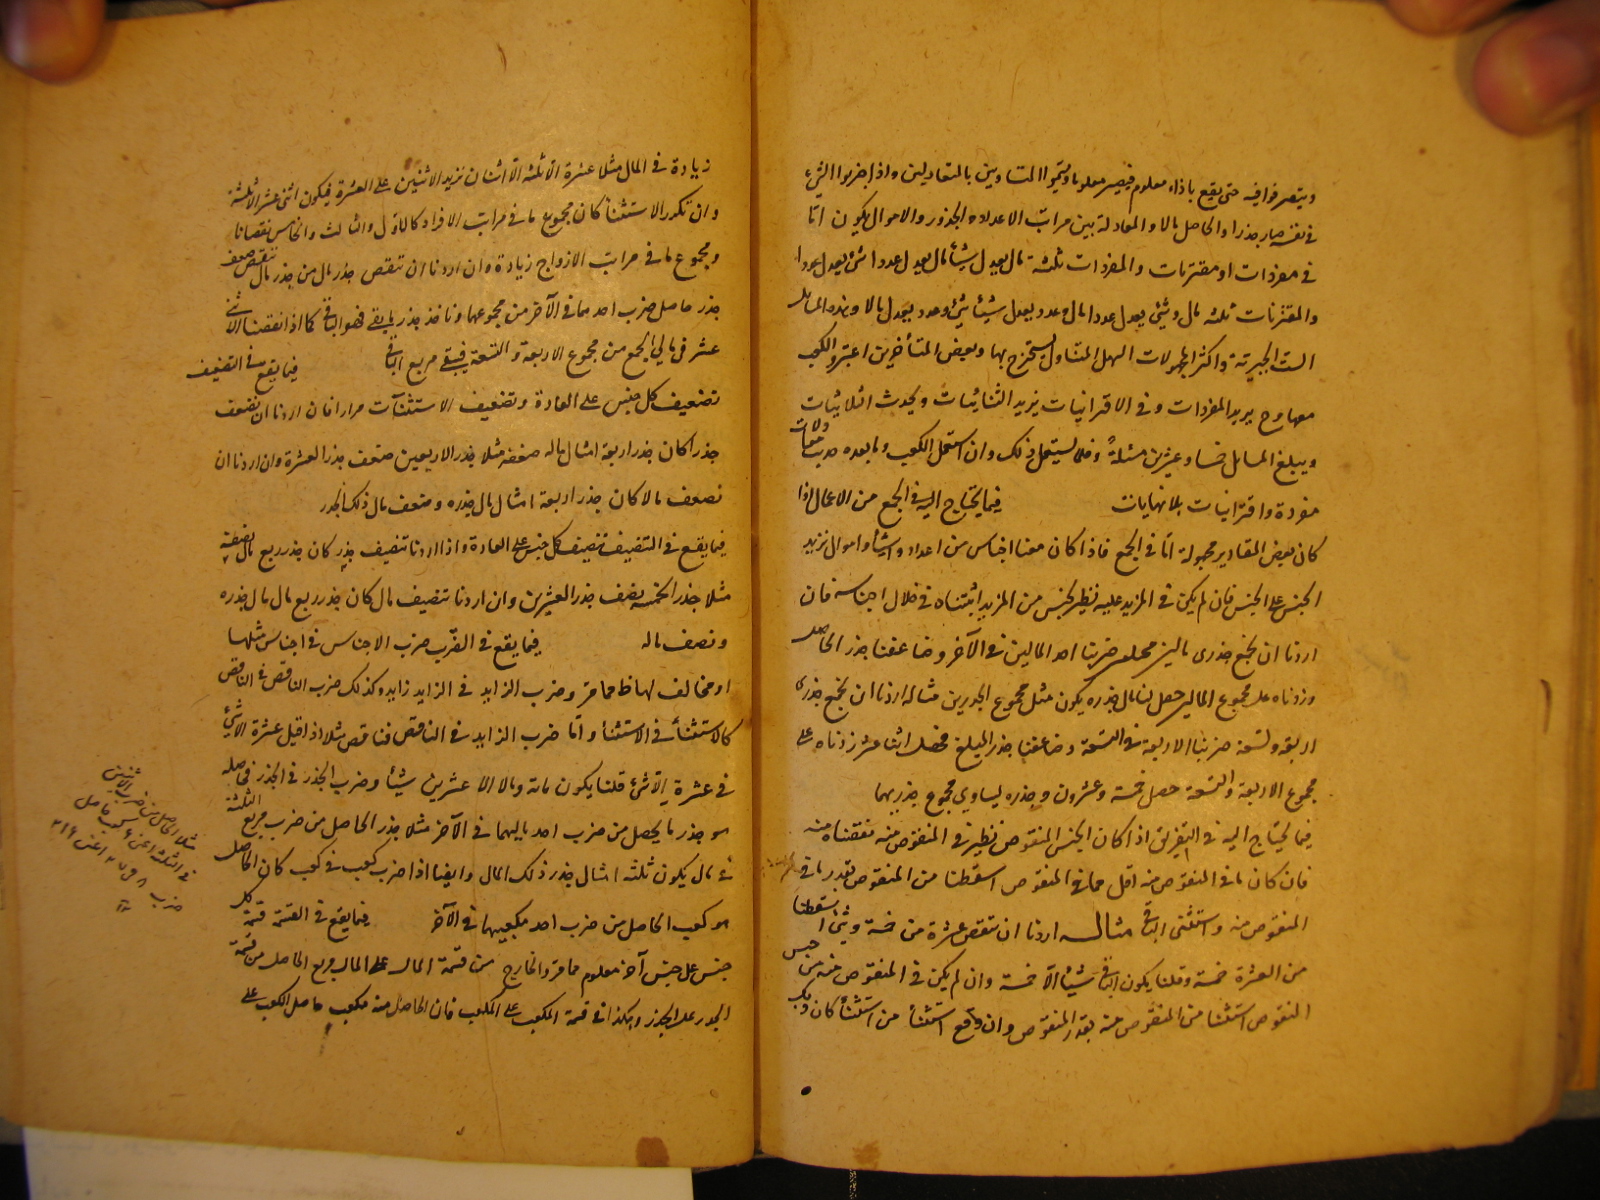 ويتصرفوا فيه حتى يقع بازاء معلوم فيصير معلوما ويسموا المتساويين بالمتعادلين واذا ضربوا الشئ
في نفسه صار جذرا والحاصل مالا والمعادلة بين مراتب الاعداد والجذور والاموال يكون اما
في مفردات او مقترنات والمفردات ثلثة مال يعدل شيئا مال يعدل عددا شئ يعدل عددا
والمقترنات ثلثة مال وشئ يعدل عددا مال وعدد يعدل شيئا شئ وعدد يعدل مالا وهذه المسائل
الست الجبرية واكثر المجهولات السهل المتناول يستخرج بها وبعض المتأخرين اعتبر والكعب
يزيد المفردات وفي الاقترانيات يزيد الثنائيات ويحدث الثلاثيات
ويبلغ المسائل خمسا وعشرين مسئلة وقلما يستعمل ذلك وان استعمل الكعب وما بعده
مفردة واقترانيات بلا نهايات فيما يحتاج اليه في الجمع من الاعمال اذا
كان بعض المقادير مجهولة اما في الجمع فاذا كان معنا اجناس من اعداد واشيأ واموال نزيد
الجنس على الجنس فان لم يكن في المزيد عليه نظير لجنس من المزيد اثبتناه في خلال اجناسه فان
اردنا ان نجمع جذرى مالين ضربنا احد المالين في الآخر وضاعفنا جذر الحاصل
وزدناه على مجموع المالين حصل لنا مال جذره يكون مثل مجموع الجذرين مثاله اردنا ان نجمع جذرى
اربعة وتسعة ضربنا الاربعة في التسعة وضاعفنا جذر المبلغ فحصل اثنا عشر زدناه على
مجموع الاربعة والتسعة حصل خمسة وعشرون وجذره يساوي مجموع جذريهما
فيما يحتاج اليه في التفريق اذا كان الجنس المنقوص نظير في المنقوص منه نقصناه منه
فان كان ما في المنقوص منه اقل مما في المنقوص اسقطنا من المنقوص بقدر ما في
المنقوص منه واستثنى الباقي مثاله اردنا ان ننقص عشرة من خمسة وشئ اسقطنا
من العشرة خمسة وقلنا يكون الباقي شيئا الا خمسة وان لم يكن في المنقوص منه من جنس
المنقوص استثنا من المنقوص منه بقدر المنقوص وان وقع استثنأ من استثنأ كان
زيادة في المال مثلا عشرة الا ثلثة الا اثنان نزيد الاثنين على العشرة فيكون اثنى عشر الا ثلثة
وان تكرر الاستثنأ كان مجموع ما في مراتب الافراد كالاول والثالث والخامس نقصانا
ومجموع ما في مراتب الازواج زيادة وان اردنا ان ننقص جذر مال من جذر مال ننقص ضعف
جذر حاصل ضرب احدهما في الآخر من مجموعهما وناخذ جذر ما بقي فهو الباقي كما اذا نقصنا الاثني
عشر في مثالي الجمع من مجموع الاربعة والتسعة فيبقى مربع الباقي فيما يقع في التضعيف
تضعيف كل جنس على العادة وتضعيف الاستثنآت مرارا فان اردنا ان نضعف
جذرا كان جذر اربعة امثال ماله ضعفه مثلا جذر الاربعين ضعف جذر العشرة وان اردنا ان
نضعف مالا كان جذر اربعة امثال مال جذره وضعف مال ذلك الجذر
فيما يقع في التنصيف تنصيف كل جنس على العادة واذا اردنا تنصيف جذر كان جذر ربع مال نصفه
مثلا جذر الخمسة نصف جذر العشرين وان اردنا تنصيف مال كان جذر ربع مال مال جذره
ونصف ماله فيما يقع في الضرب ضرب الاجناس في اجناس مثلها
او مخالف لها ظ مما مر وضرب الزايد في الزايد زايد وكذلك ضرب الناقص في الناقص
كالاستثنأ في الاستثنأ واما ضرب الزايد في الناقص فناقص مثلا اذا قيل عشرة الا شئ
في عشرة الا شئ قلنا يكون مائة ومالا الا عشرين شيئا وضرب الجذر في الجذر فحاصله
هو جذر ما يحصل من ضرب احد ماليهما في الآخر مثلا جذر الحاصل من ضرب مربع الثلثة
في مال يكون ثلثة امثال جذر ذلك المال وايضا اذا ضرب كعب في كعب كان الحاصل
هو كعب الحاصل من ضرب احد مكعبيهما في الآخر فيما يقع في القسمة قسمة كل
جنس على جنس آخر معلوم مما مر والخارج من قسمة المال على المال مربع الحاصل من قسمة
الجذر على الجذر وهكذا في قسمة المكعب على المكعب فان الحاصل منه مكعب حاصل الكعب على
مثلا الحاصل من ضرب الاثنين
في الثلثة اعني ٦ كعب حاصل
ضرب ٨ في ٢٧ اعني ٢١٦